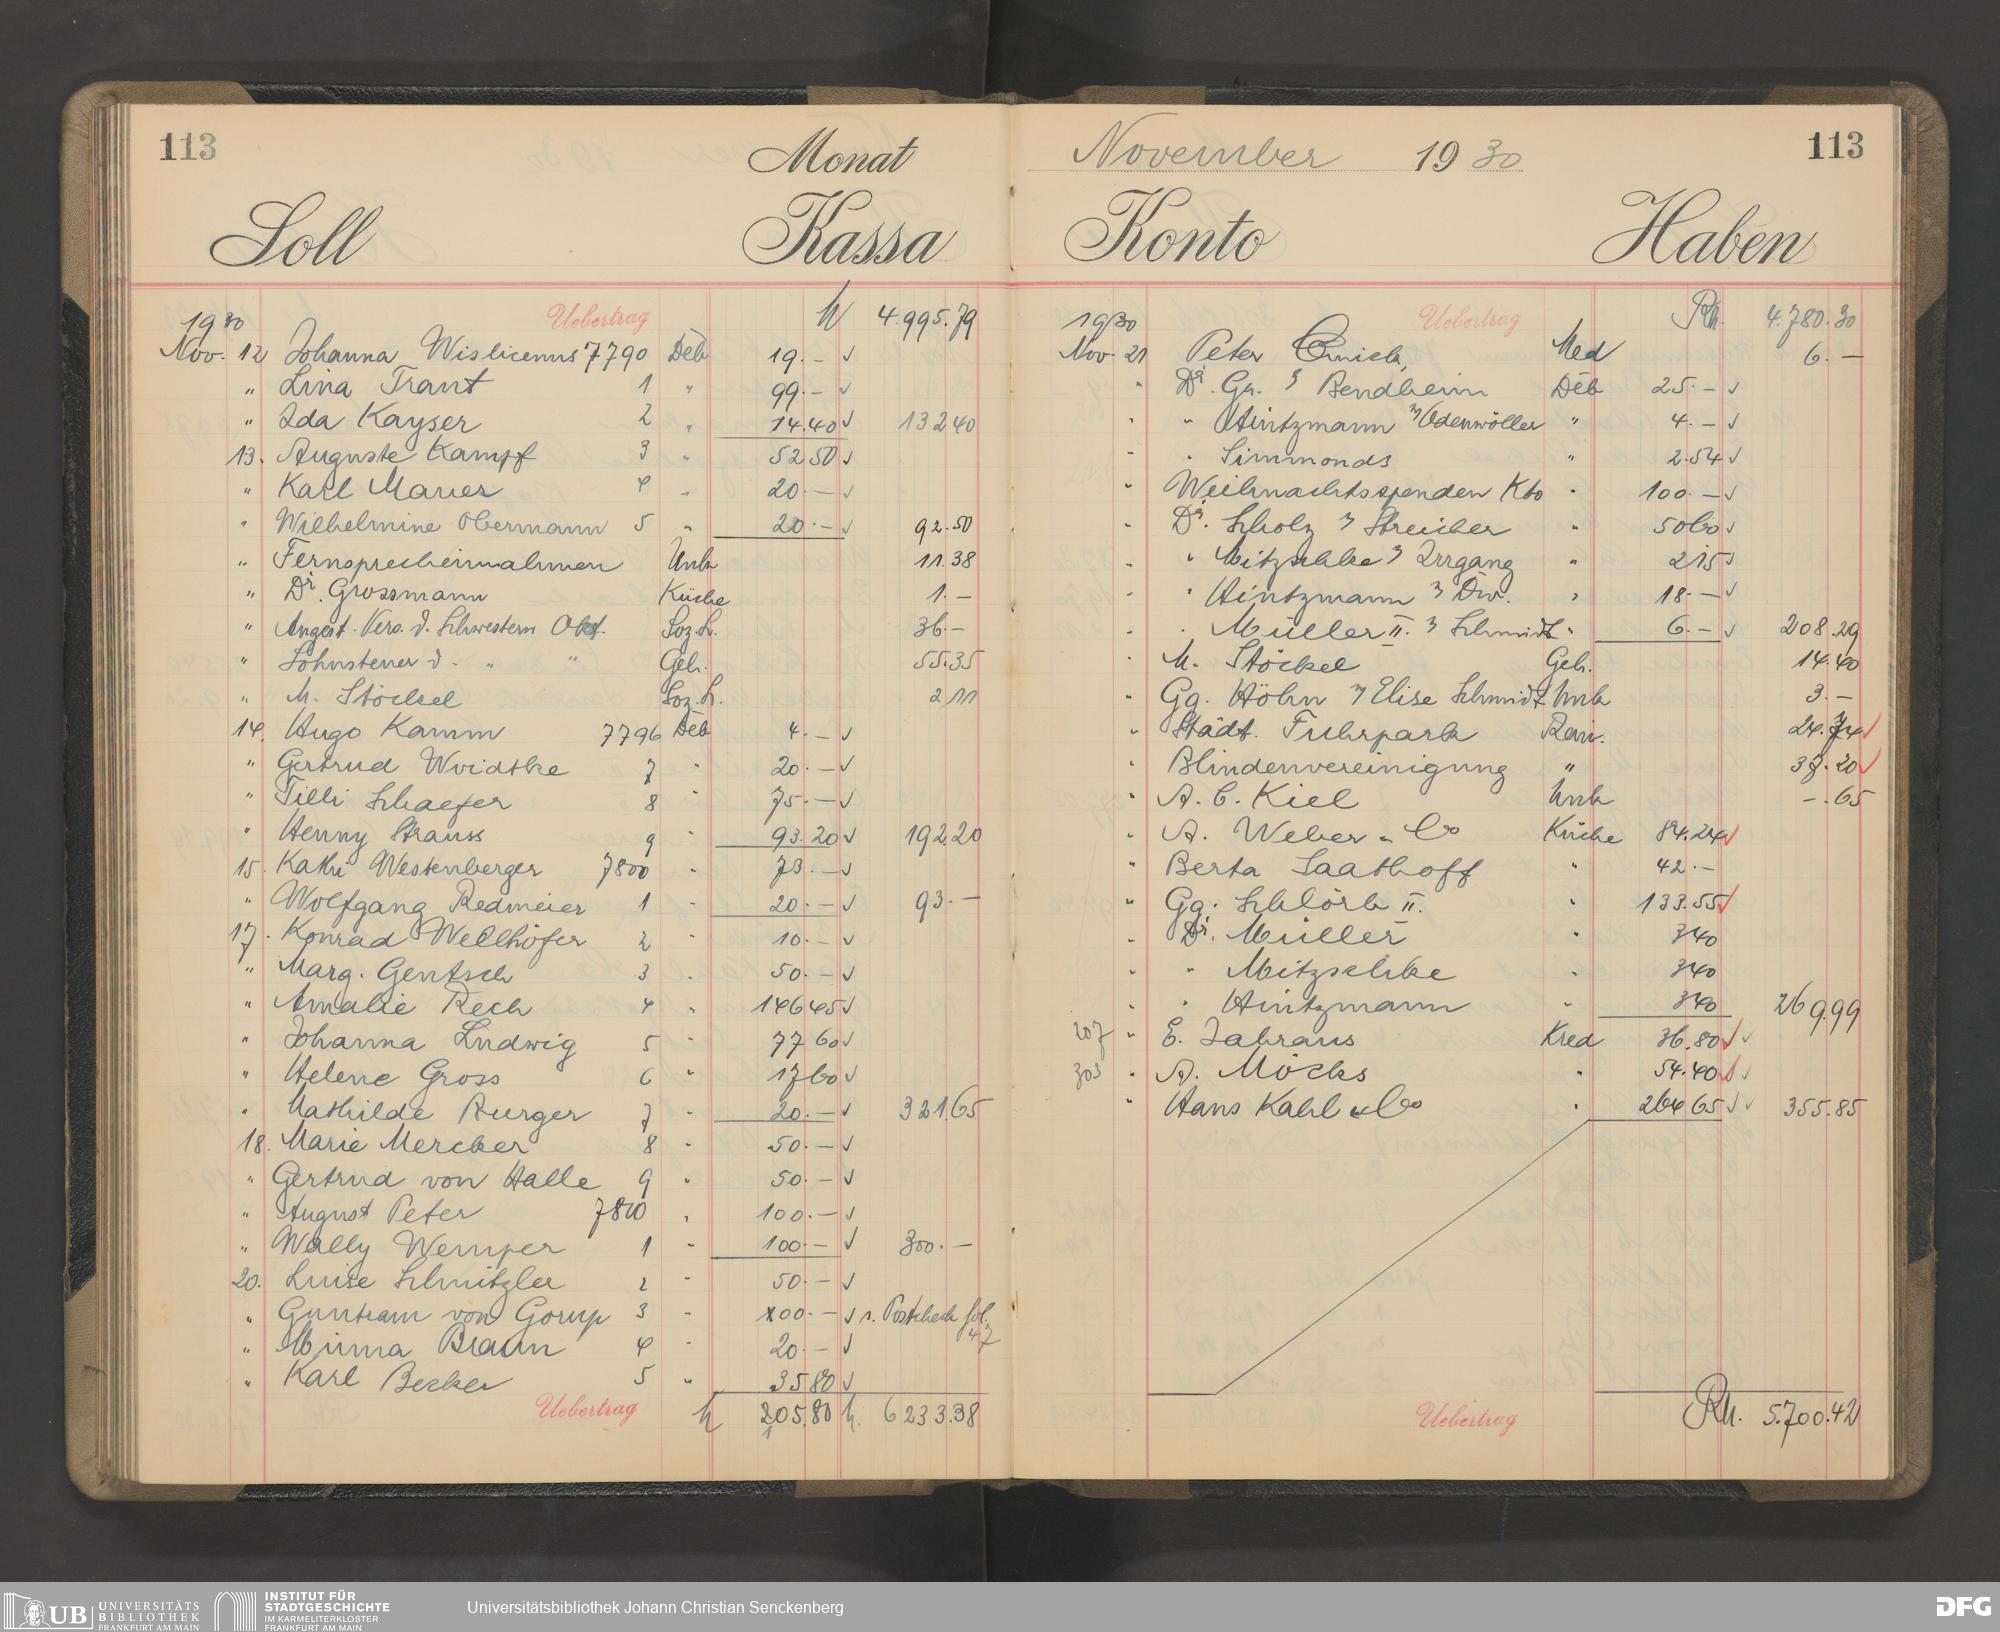 113
Monat
Soll Kassa
Uebertrag 4.995.79
1930
Nov. 12 Johanna Wislicenus 7790 Deb 19.–
" Lina Trant 1 " 99.–
" Ida Kayser 2 " 14.40 132 40
13. Auguste Kampf 3 " 52 50
" Karl Maurer 4 " 20.–
" Wilhelmine Obermann 5 " 20.– 92.50
" Fernsprecheinnahmen Unk 11.38
" Dr. Grossmann Küche 1.–
" Angest. Vers. d. Schwestern Okt. Soz. L. 36.–
" Lohnsteuer d. " " Geh. 55.35
" M. Stöckel Soz. L. 2 11
14. Hugo Kamm 7796 Deb 4.–
" Gertrud Woidtke 7 " 20.–
" Tilli Schaefer 8 " 75.–
" Henny Strauss 9 " 93.20 192.20
15. Kathi Westenberger 7800 " 73.–
" Wolfgang Redmeier 1 " 20.– 93.–
17. Konrad Wellhöfer 2 " 10.–
" Marg. Gentsch 3 " 50.–
" Amalie Rech 4 " 146 45
" Johanna Ludwig 5 " 77 60
" Helene Gross 6 " 17 60
" Mathilde Burger 7 " 20.– 321.65
18. Marie Mercker 8 " 50.–
" Gertrud von Halle 9 " 50.–
" August Peter 7810 " 100.–
" Wally Wemper 1 " 100.– 300.–
20. Luise Schnitzler 2 " 50.–
" Guntram von Gorup 3 " 100.– s. Postscheck fol. 47
" Minna Braun 4 " 20.–
" Karl Becker 5 " 35 80
Uebertrag 205.80 6233.38
113
November 1930
Konto Haben
Uebertrag Rm. 4.780.30
1930
Nov. 21 Peter Med 6.–
" Dr. Gr. Bendheim Deb 25.–
" " Hintzmann Odenwöller " 4.–
" " Simmonds " 2.54
" Weihnachtsspenden Kto " 100.–
" Dr. Scholz Streicher " 50 60
" " Mitzschke Irrgang " 2 15
" " Hintzmann Div. " 18.–
" " Müller II. Schmidt " 6.– 208.29
" M. Stöckel Geh. 14.40
" Gg. Höhn Elise Schmidt Unk 3.–
" Städt. Fuhrpark Rei. 24.74
" Blindenvereinigung " 37.20
" A. C. Kiel Unk –.65
" A. Weber u Co Küche 84.24
" Berta Saathoff " 42.–
" Gg. Schlörb II. " 133.55
" Dr. Müller " 3 40
" " Mitzschke " 3 40
" " Hintzmann " 3 40 269.99
207 " E. Jahraus Kred 36.80
303 " A. Möcks " 54.40
" Hans Kahl u Co " 264 65 355.85
Uebertrag Rm. 5.700.42
UB UNIVERSITÄTS
BIBLIOTHEK
FRANKFURT AM MAIN
INSTITUT FÜR
STADTGESCHICHTE
IM KARMELITERKLOSTER
FRANKFURT AM MAIN
Universitätsbibliothek Johann Christian Senckenberg
DFG